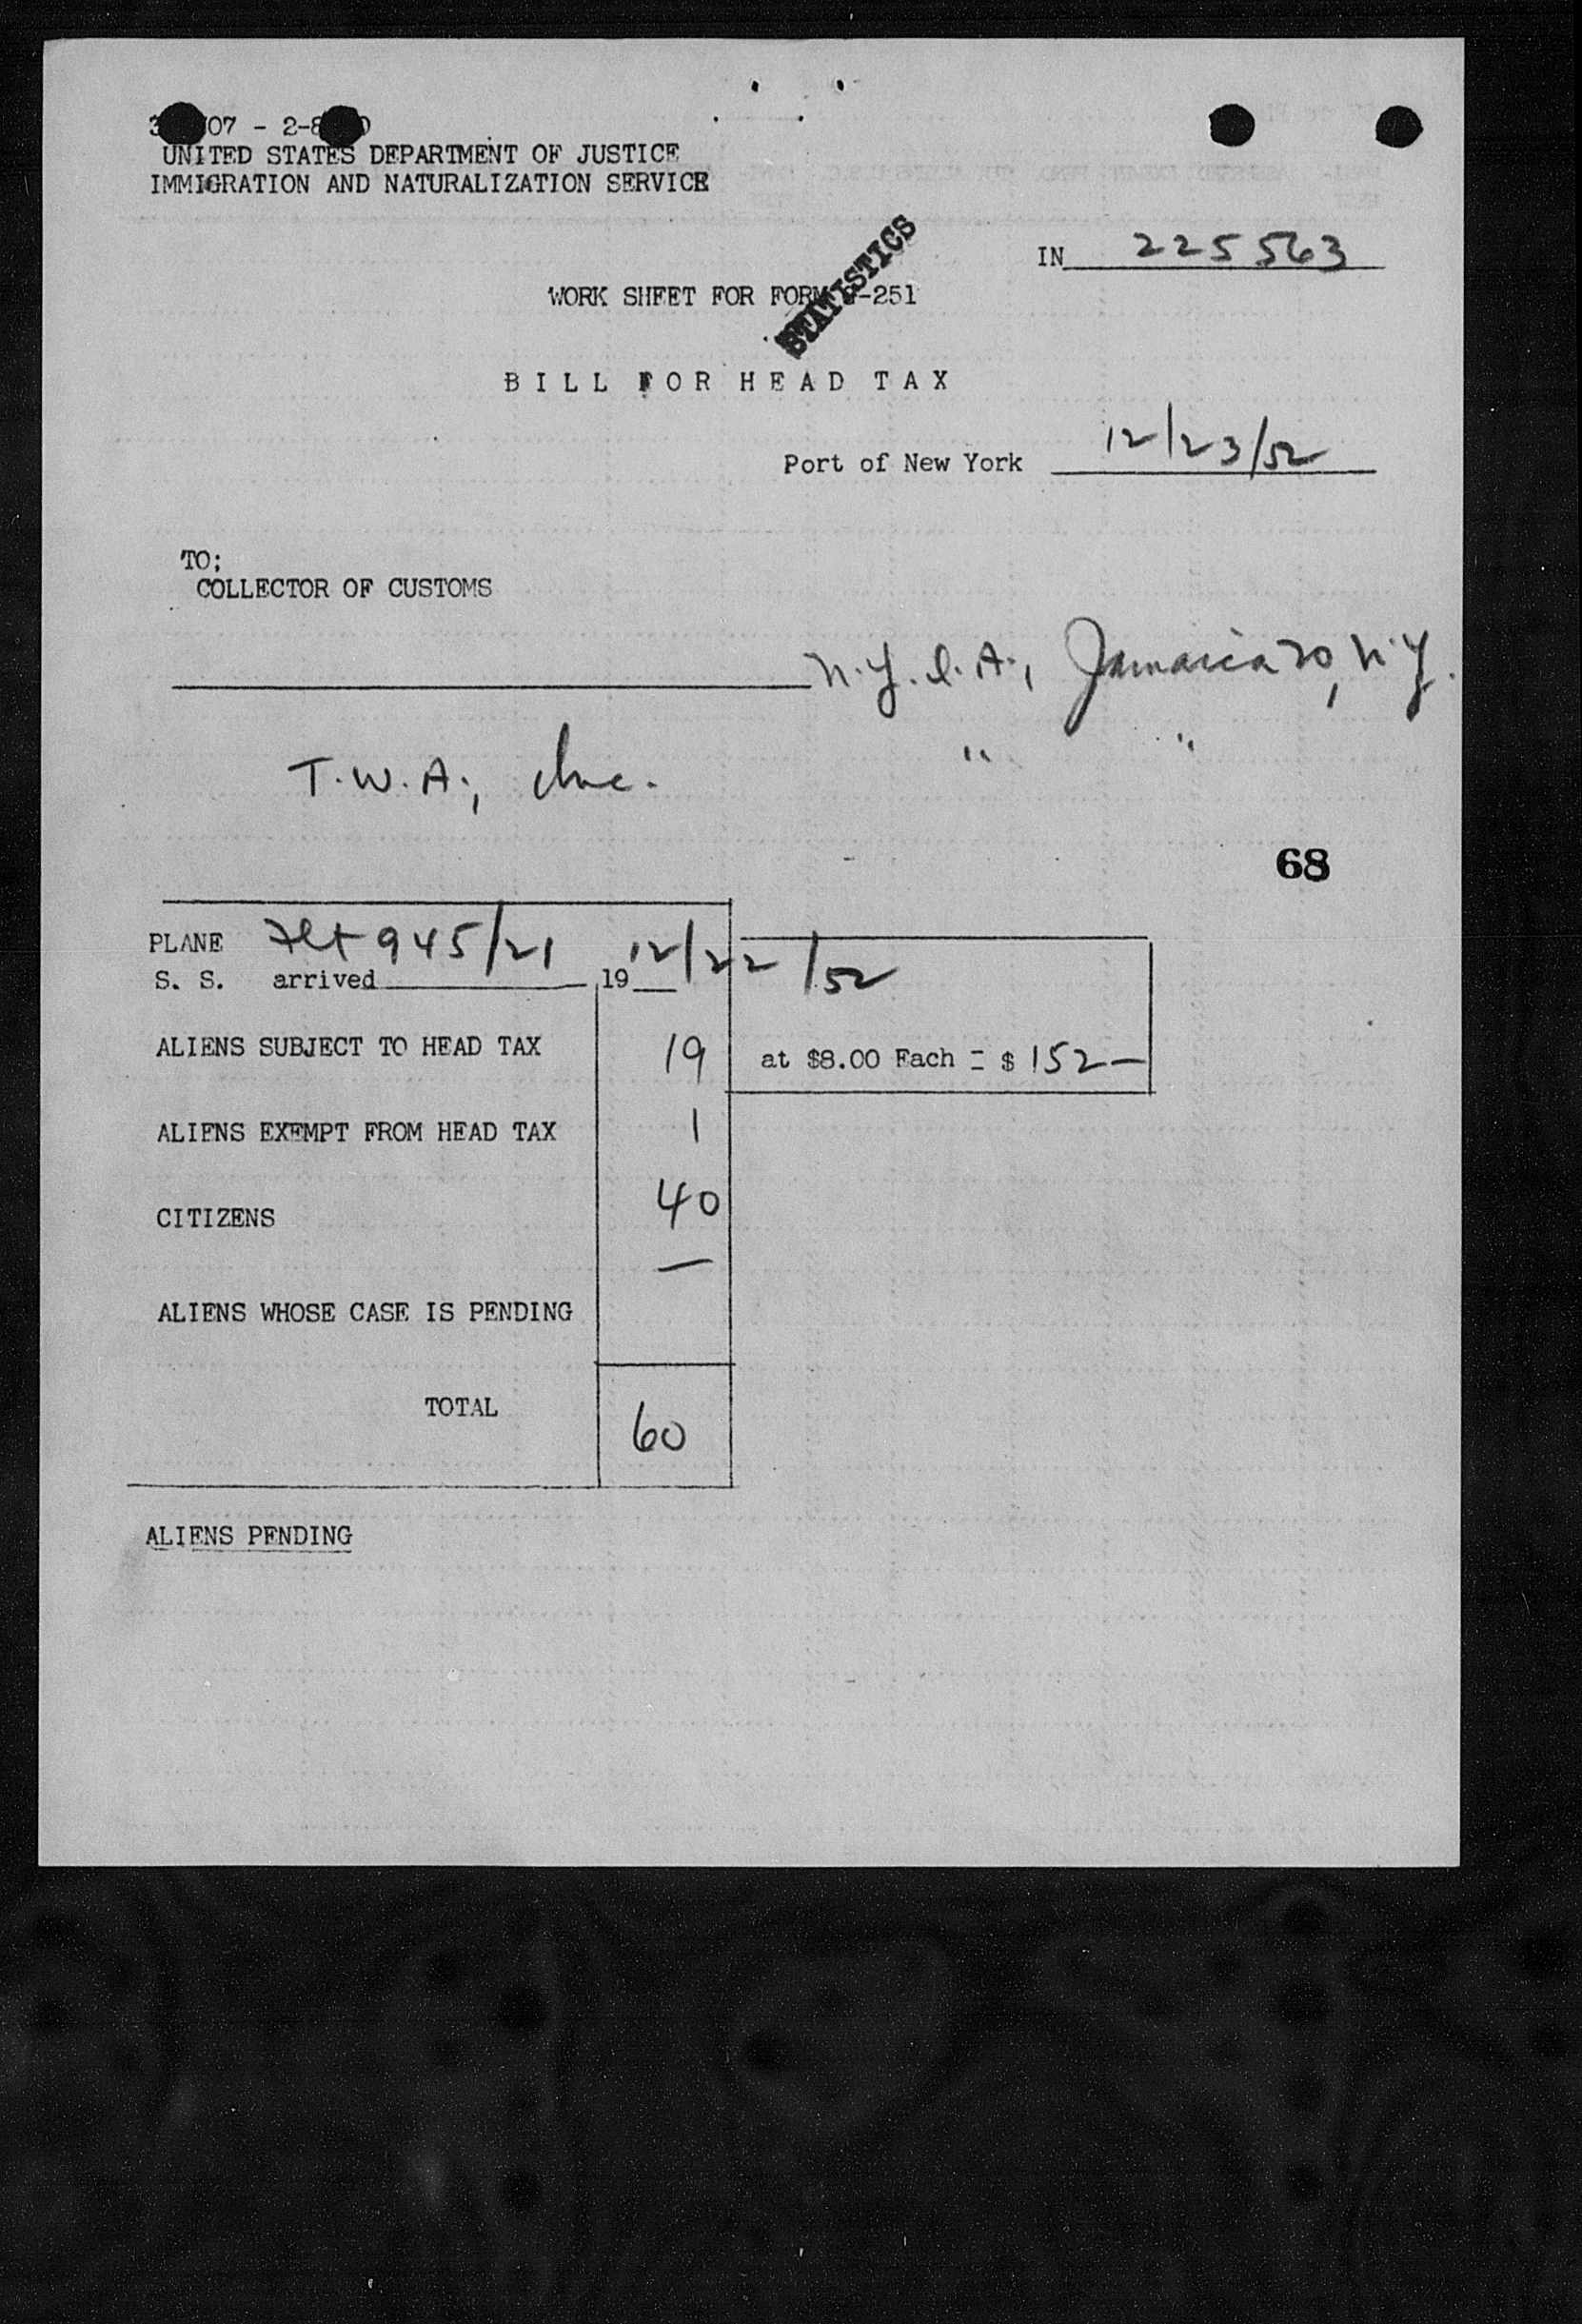 07 - 2-8
UNITED STATES DEPARTMENT OF JUSTICE
IMMIGRATION AND NATURALIZATION SERVICE
STATISTICS
IN 225563
WORK SHEET FOR FORM -251
BILL FOR HEAD TAX
Port of New York 12/23/52
TO;
COLLECTOR OF CUSTOMS
N.Y.I.A., Jamaica 30, N.Y.
T.W.A., Inc. " "
68
PLANE Flt 945/21 12/22/52
S. S. arrived 19
ALIENS SUBJECT TO HEAD TAX 19 at $8.00 Each = $ 152—
ALIENS EXEMPT FROM HEAD TAX 1
CITIZENS 40
—
ALIENS WHOSE CASE IS PENDING
TOTAL 60
ALIENS PENDING